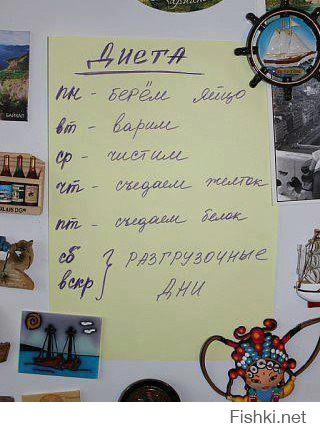 ДИЕТА
пн - берём яйцо
вт - варим
ср - чистим
чт - съедаем желток
пт - съедаем белок
сб
вскр } РАЗГРУЗОЧНЫЕ
ДНИ
БАЙКАЛ
Fishki.net